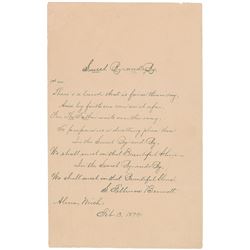 Sweet By-and-By.
There's a land that is fairer than day,
And by faith we can see it afar
For the Father waits over the way
To prepare us a dwelling place there
In the Sweet By-and-By
We shall meet on that Beautiful Shore
In the Sweet By-and-By
We shall meet on that Beautiful Shore
S. Fillmore Bennett
Mich.
Feb.